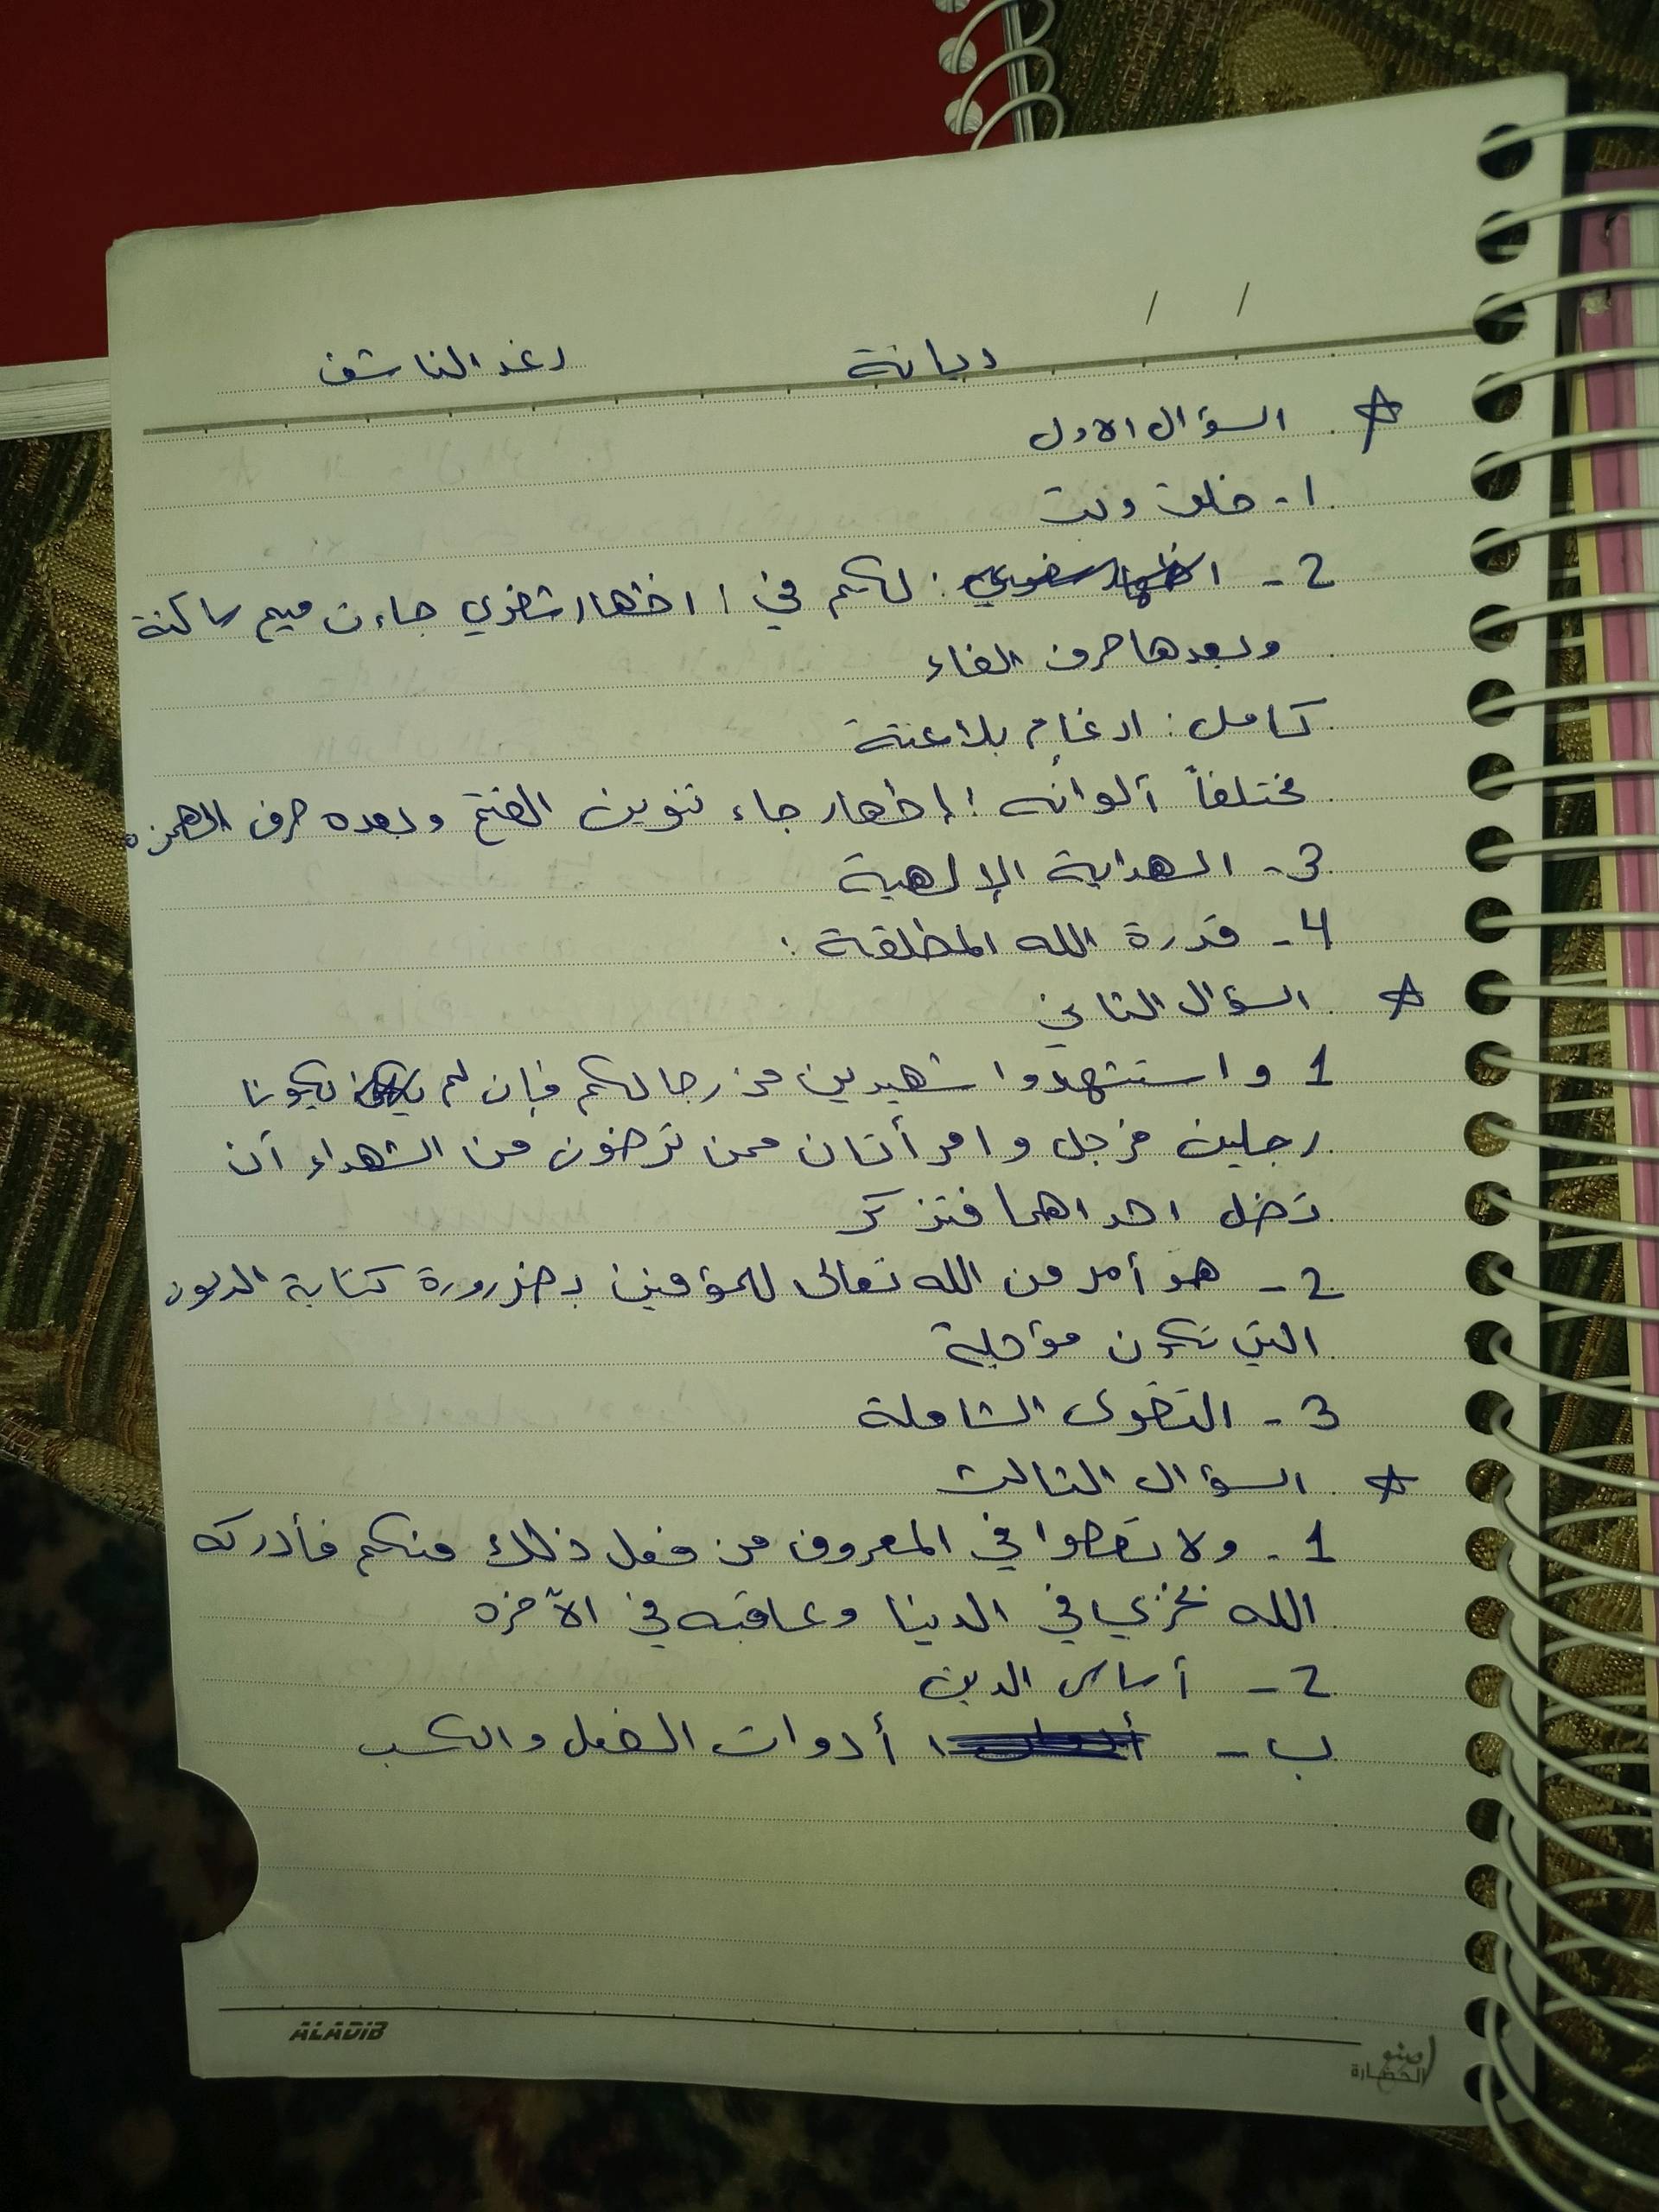 ديانة رغد الناشف
السؤال الاول
1- خلق وبث
2- لكم في : اظهار شفوي جاءت ميم ساكنة
وبعدها حرف الفاء
كامل : ادغام بلا غنة
مختلفاً ألوانه : إظهار جاء تنوين الفتح وبعده حرف الهمزه
3- الهداية الإلهية
4- قدرة الله المطلقة :
السؤال الثاني
1 واستشهدوا شهيدين من رجالكم فإن لم يكونا
رجلين فرجل وامرأتان ممن ترضون من الشهداء أن
تضل احداهما فتذكر
2- هو أمر من الله تعالى للمؤمنين بضرورة كتابة الديون
التي تكون مؤجلة
3- التقوى الشاملة
السؤال الثالث
1- ولا تعصوا في المعروف من فعل ذلك منكم فأدركه
الله بخزي في الدينا وعاقبه في الآخره
2- أساس الدين
ب- أدوات الفعل والكسب
ALADIB
اصنع
الحضارة